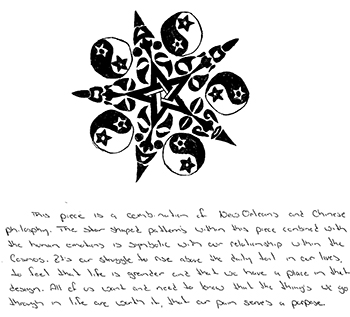 This piece is a combination of New Orleans and Chinese
philosophy. The star shaped patterns within this piece combined with
the human emotions is symbolic with our relationship within the
Cosmos. It's our struggle to rise above the daily toil in our lives,
to feel that life is grander and that we have a place in that
design. All of us want and need to know that the things we go
through in life are worth it, that our pain serves a purpose.